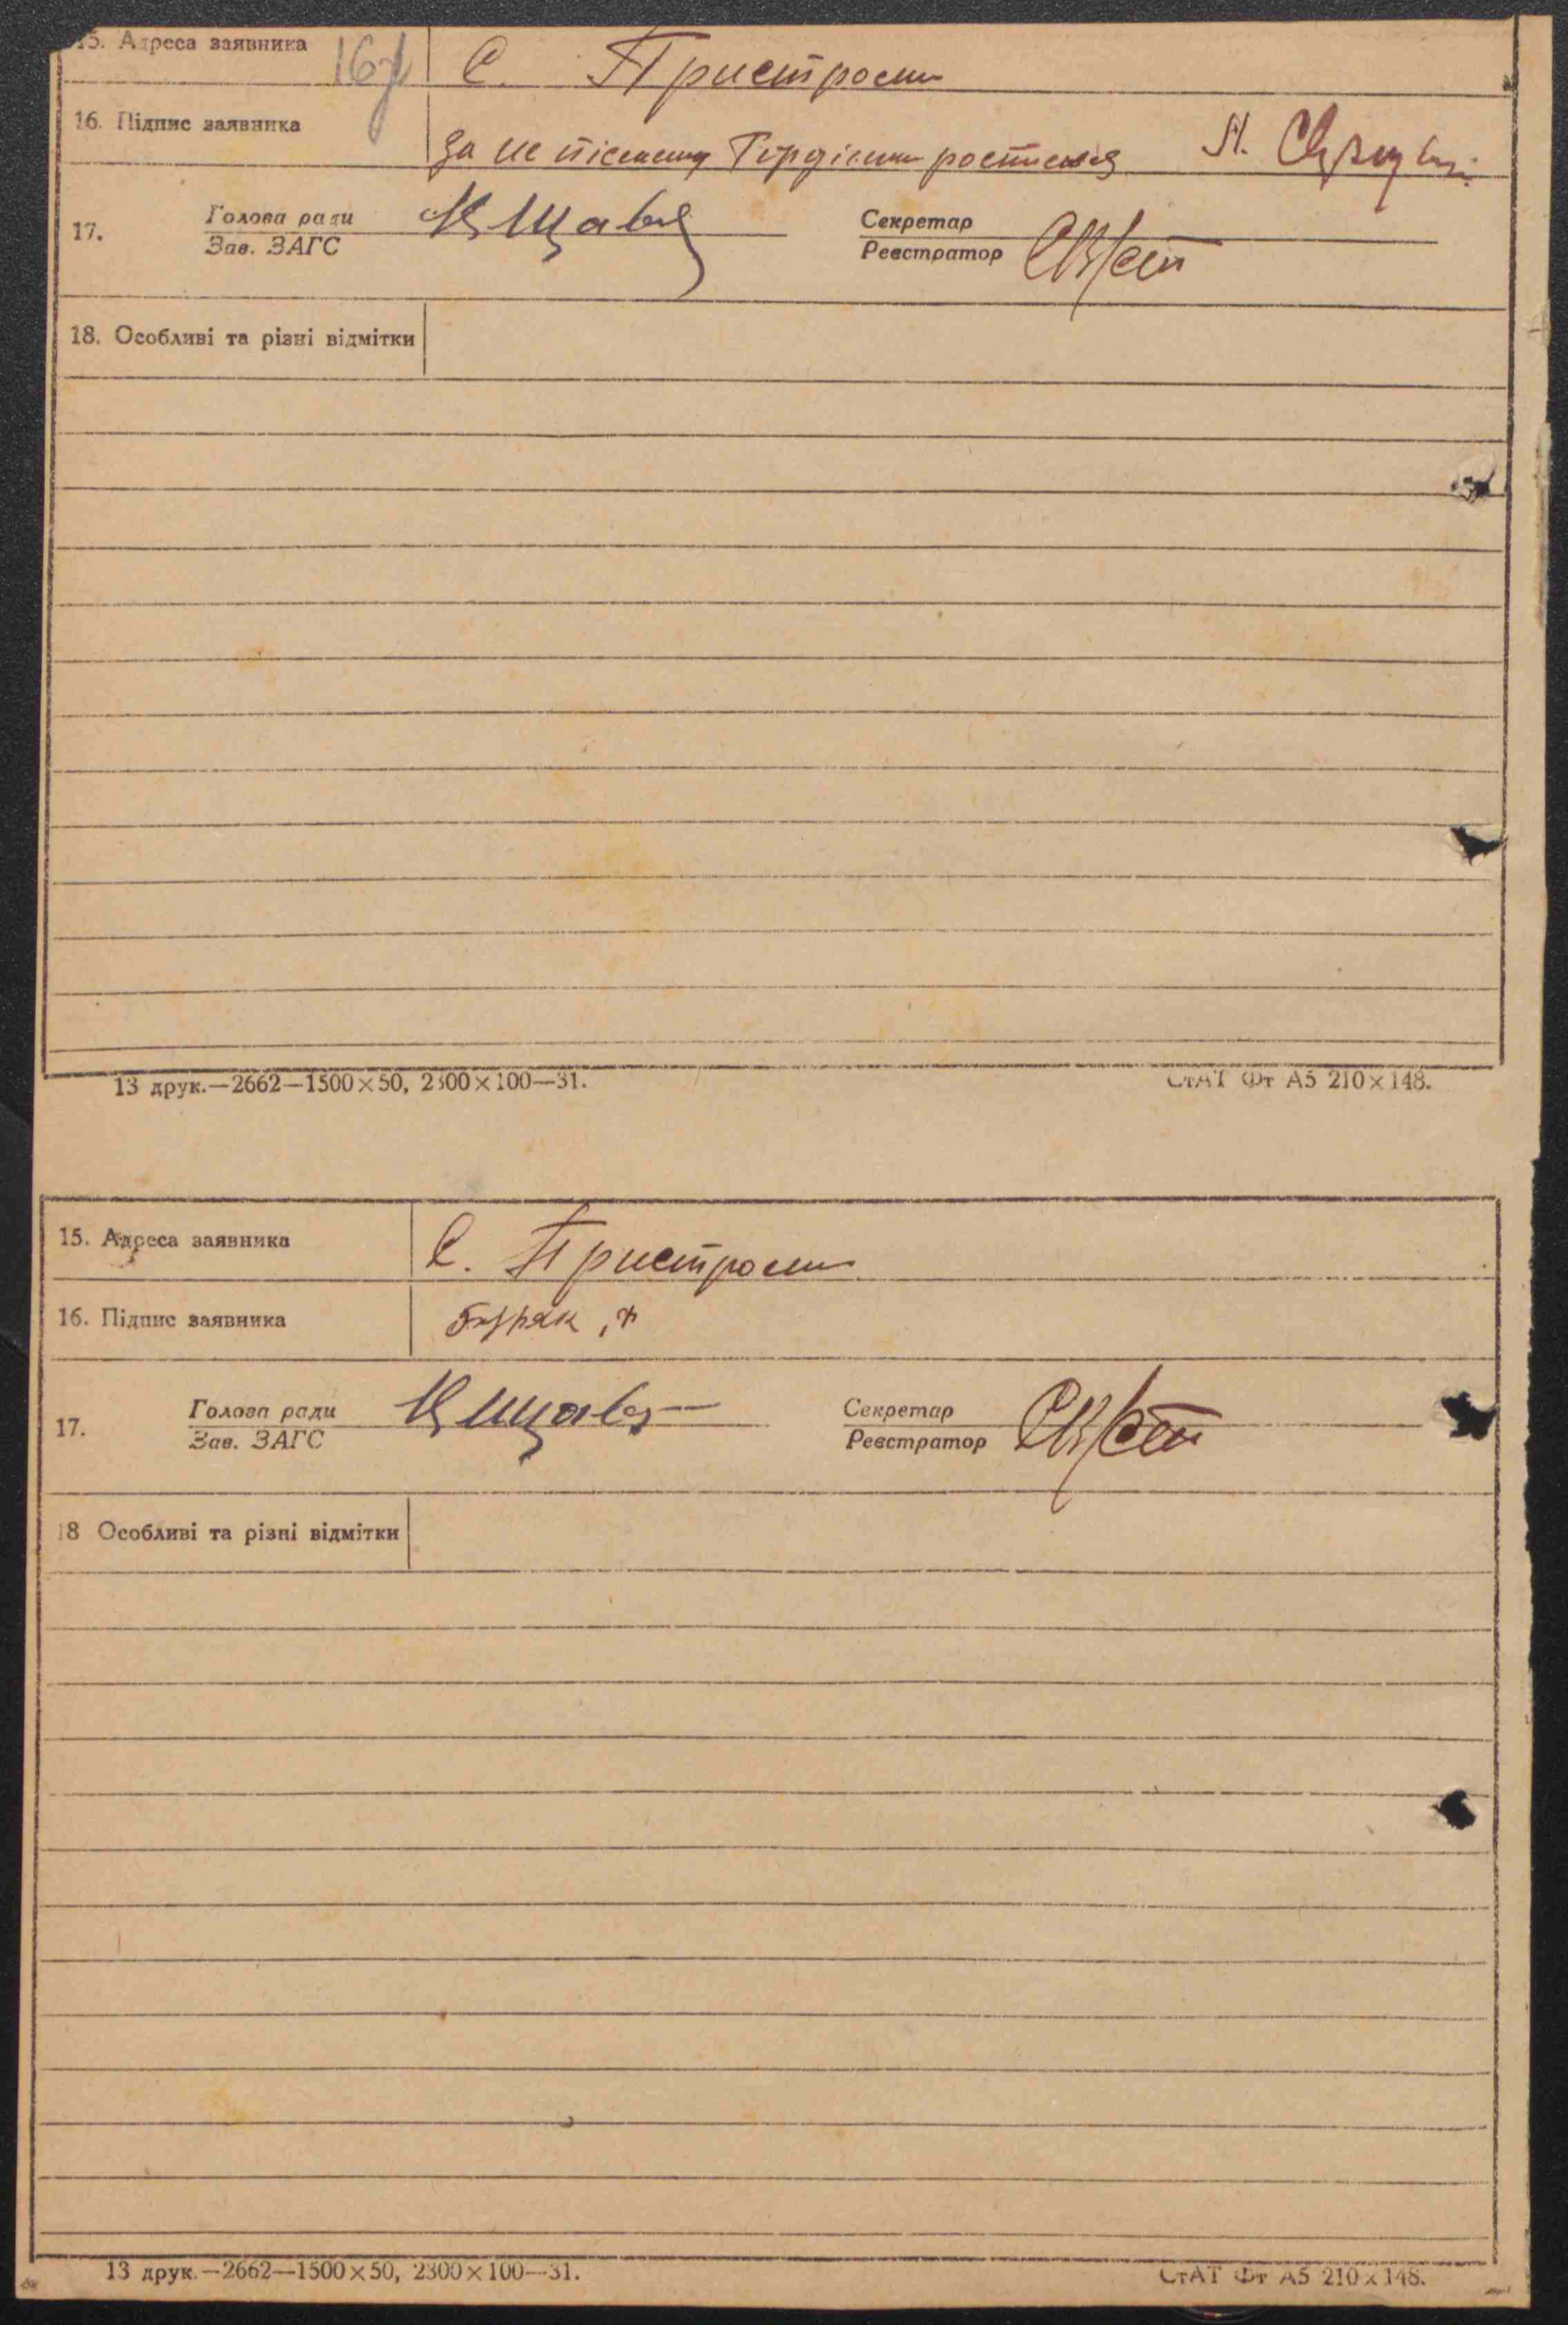 15. Адреса заявника С. Пристроми
16. Підпис заявника за не пісьмену Гордієнко росписався
17. Голова ради Секретар
Зав. ЗАГС Реєстратор
18. Особливі та різні відмітки
13 друк.—2662—1500×50, 2300×100—31. СтАТ Фт А5 210×148.
15. Адреса заявника С. Пристроми
16. Підпис заявника буряк
17. Голова ради Секретар
Зав. ЗАГС Реєстратор
18 Особливі та різні відмітки
13 друк.—2662—1500×50, 2300×100—31. СтАТ Фт А5 210×148.